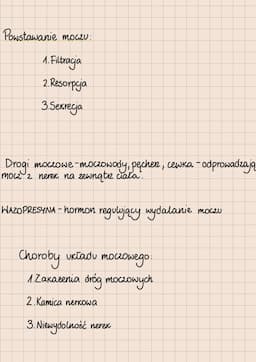 Powstawanie moczu:
1. Filtracja
2. Resorpcja
3. Sekrecja
Drogi moczowe - moczowody, pęcherz, cewka - odprowadzają
mocz z nerek na zewnątrz ciała.
WAZOPRESYNA - hormon regulujący wydalanie moczu
Choroby układu moczowego:
1. Zakażenia dróg moczowych
2. Kamica nerkowa
3. Niewydolność nerek